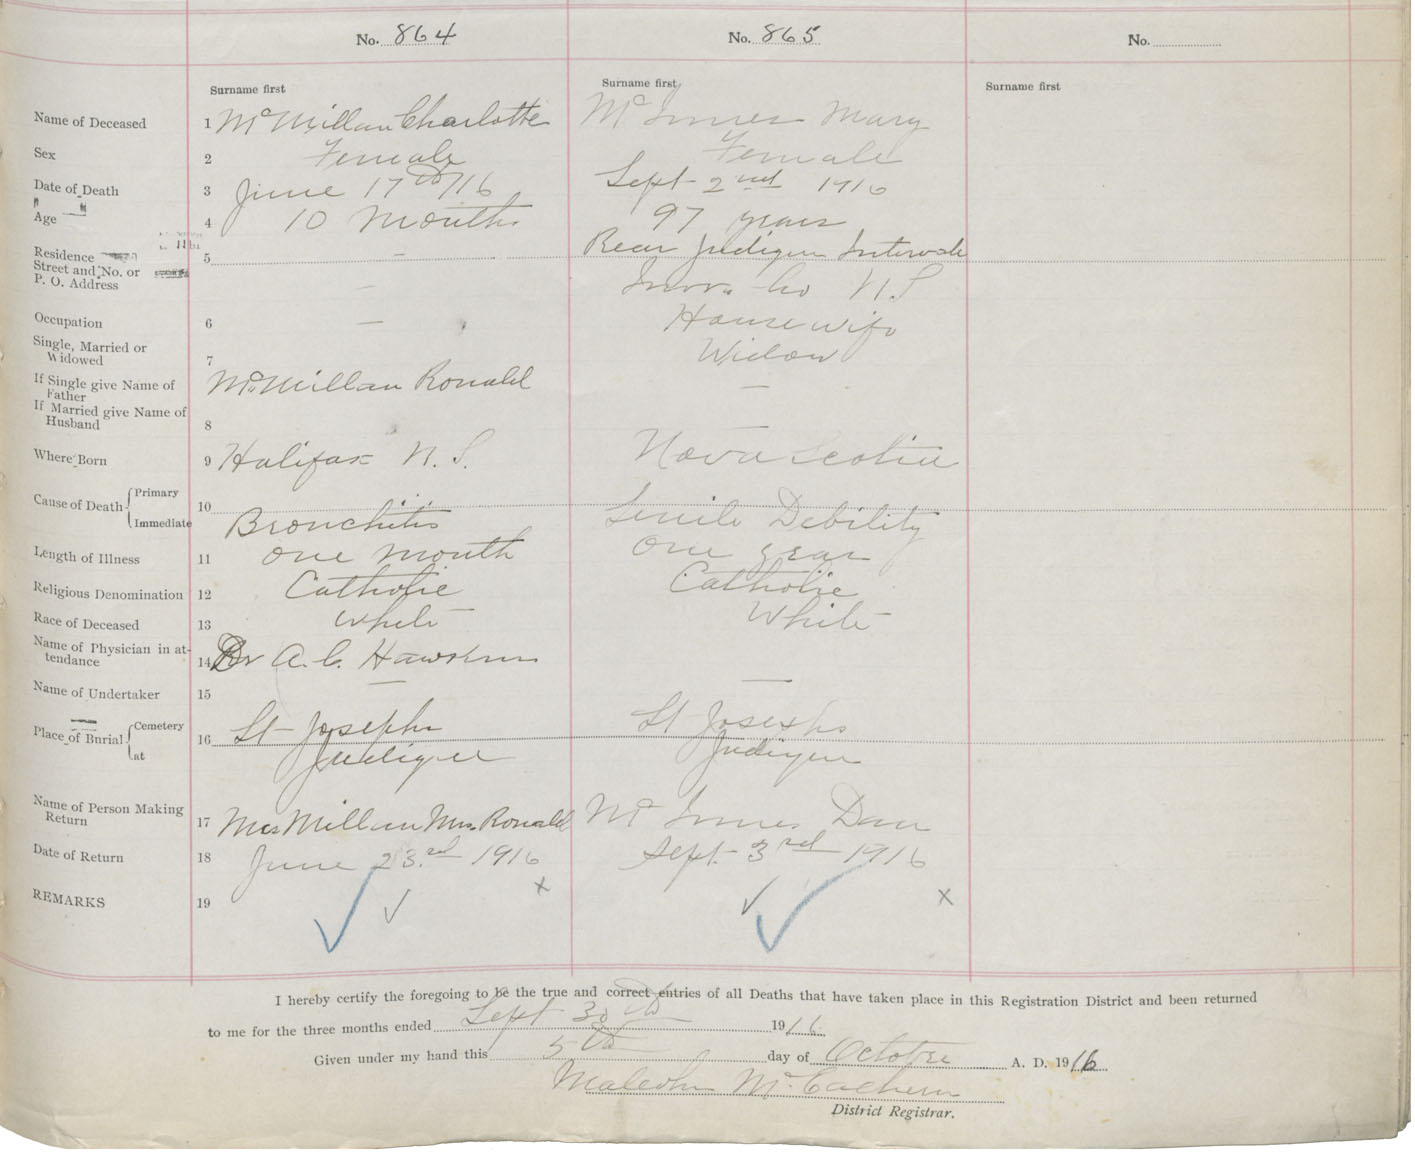 No. 864
No. 865
No.
Surname first
Surname first
Surname first
Name of Deceased 1 McMillan Charlotte Mc Innes Mary
Sex 2 Female Female
Date of Death 3 June 17th/16 Sept 2nd 1916
Age 4 10 Months 97 years
Residence 5 - Rear Judique Intervale
Street and No. or
P. O. Address - Inver. Co N.S
Occupation 6 — House wife
Single, Married or
Widowed 7 Widow
If Single give Name of
Father McMillan Ronald —
If Married give Name of
Husband 8 —
Where Born 9 Halifax N. S. Nova Scotia
Cause of Death Primary 10
Immediate Bronchitis Senile Debility
Length of Illness 11 one month one year
Religious Denomination 12 Catholic Catholic
Race of Deceased 13 White White
Name of Physician in at-
tendance 14 Dr A. C. Hawkins
Name of Undertaker 15 — —
Place of Burial Cemetery 16 St Josephs St Josephs
at Judique Judique
Name of Person Making
Return 17 McMillan Mrs. Ronald Mc Innes Dan
Date of Return 18 June 23rd 1916 Sept 3rd 1916
REMARKS 19 x x
I hereby certify the foregoing to be the true and correct entries of all Deaths that have taken place in this Registration District and been returned
to me for the three months ended Sept 30th 1916
Given under my hand this 5th day of October A. D. 1916
Malcolm Mc Eachern
District Registrar.